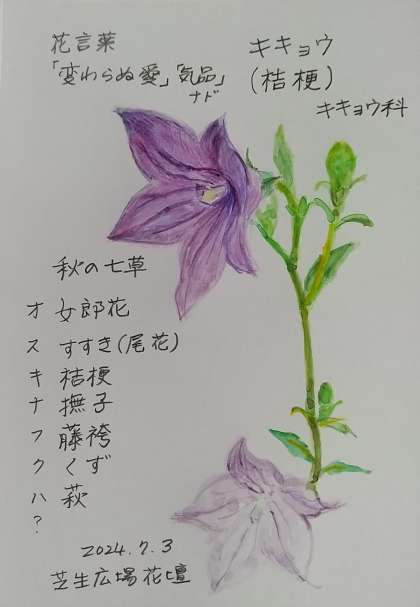 花言葉
「変わらぬ愛」「気品」
ナド
キキョウ
(桔梗)
キキョウ科
秋の七草
オ 女郎花
ス すすき(尾花)
キ 桔梗
ナ 撫子
フ 藤袴
ク くず
ハ 萩
?
2024.7.3
芝生広場花壇